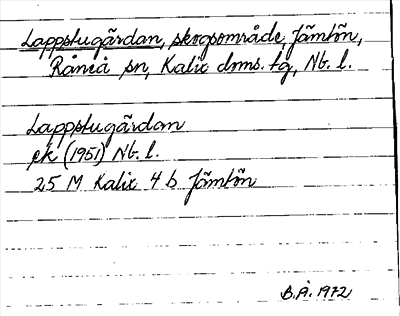 Lappstugårdan, skogsområde, Jämtön,
Råneå sn, Kalix doms. tg, Nb. l.
Lappstugårdan
ek (1951) Nb. l.
25 M Kalix 4 b Jämtön
B.Å. 1972